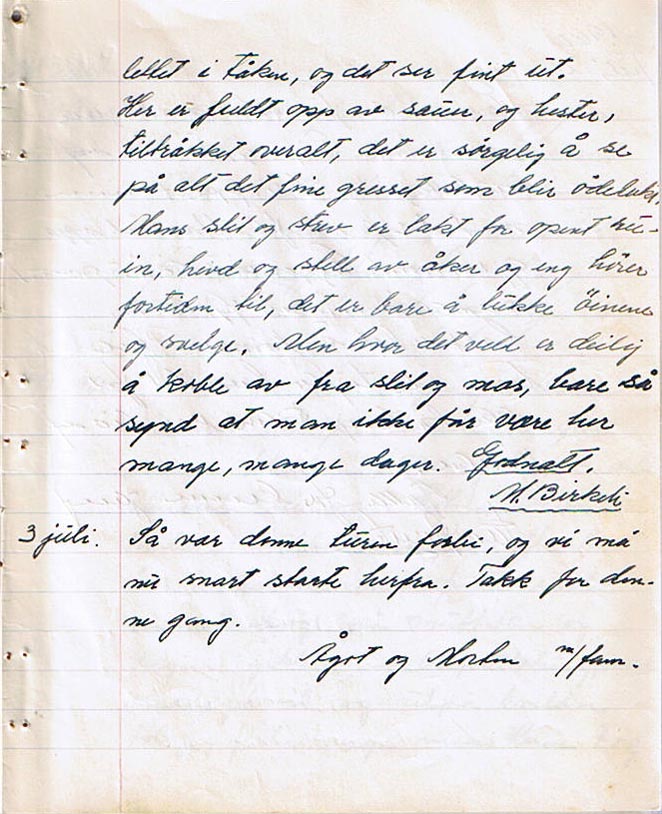 lettet i tåken, og det ser fint ut.
Her er fuldt opp av sauer, og hester,
tiltråkket overalt, det er sørgelig å se
på alt det fine gresset som blir ödelakt.
Mans slit og strev er lakt for opent
in, hevd og stell av åker og eng hörer
fortiden til, det er bare å lukke öinene
og svelge. Men hvor det veld er deilig
å koble av fra slit og mas, bare så
synd at man ikke får være her
mange, mange dager. Godnatt.
M. Birkeli
3 juli. Så var denne turen forbi, og vi må
nu snart starte herfra. Takk for den-
ne gang.
Ågot og Morten m/fam.